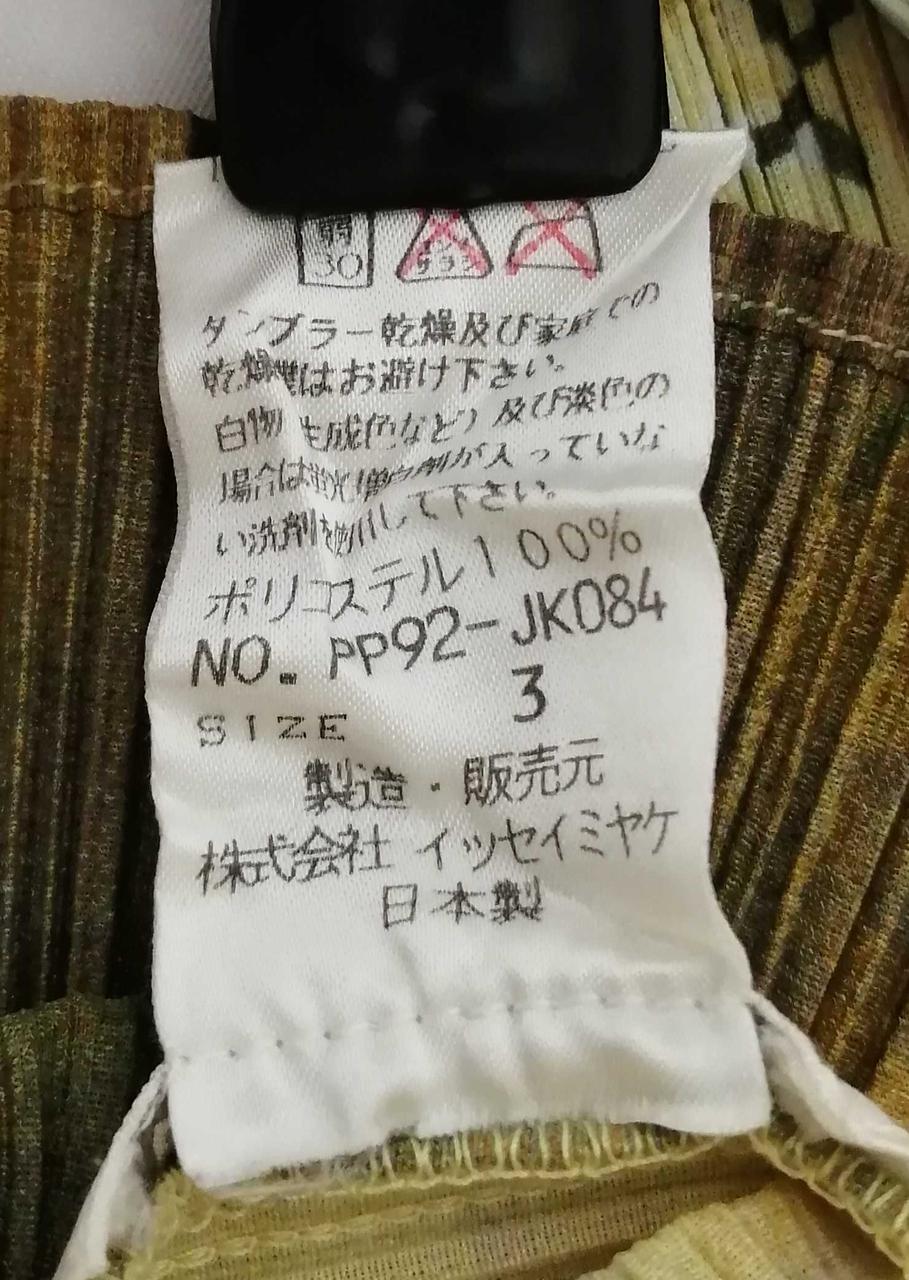 弱 30 サラシ
タンブラー乾燥及び家庭での
乾燥機はお避け下さい。
白物 生成色など）及び淡色の
場合は蛍光増白剤が入っていな
い洗剤を使用して下さい。
ポリエステル100%
NO. PP92-JK084
SIZE 3
製造・販売元
株式会社 イッセイミヤケ
日本製